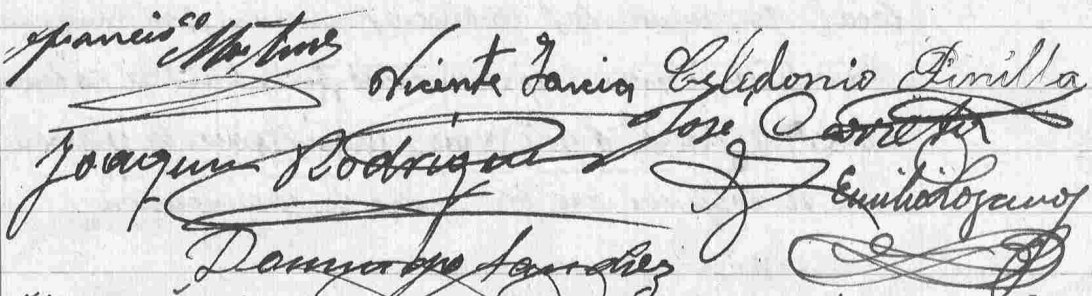 Francisco Martinez
Vicente Garcia Celedonio Pinilla
Joaquin Rodriguez Jose Carreta
Emilio Lozano
Domingo Sanchez